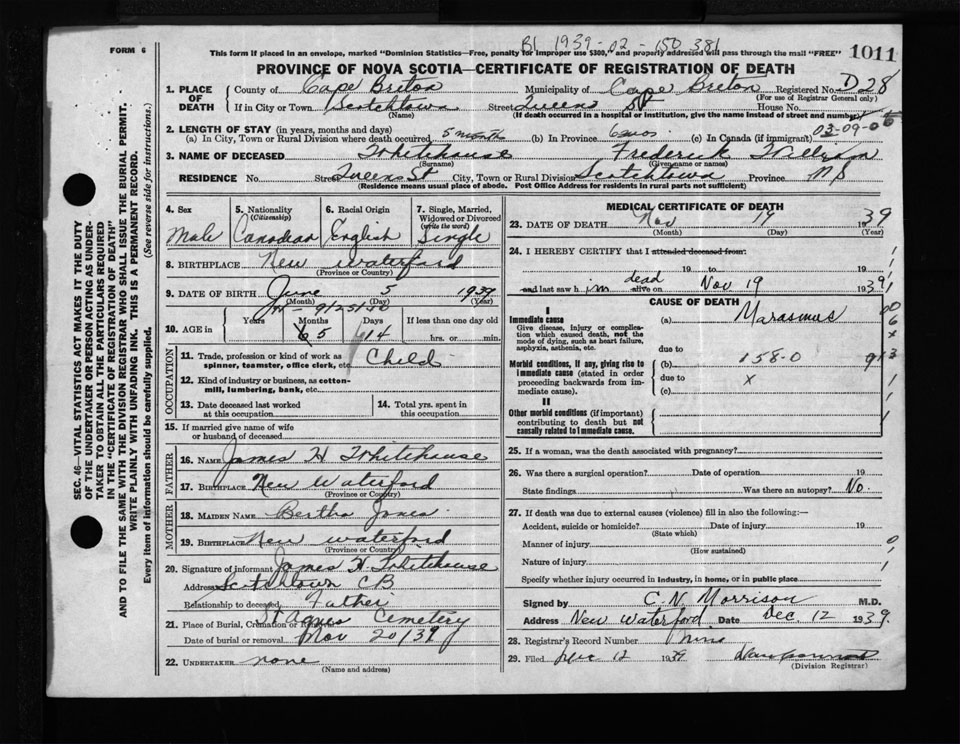 FORM 6
B1 1939-02-150381
This form if placed in an envelope, marked "Dominion Statistics—Free, penalty for improper use $300," and properly addressed will pass through the mail "FREE"
1011
PROVINCE OF NOVA SCOTIA—CERTIFICATE OF REGISTRATION OF DEATH
1. PLACE OF DEATH
County of Cape Breton Municipality of Cape Breton Registered No. D28
(For use of Registrar General only)
If in City or Town Scotchtown Street Queen St House No.
(Name) (If death occurred in a hospital or institution, give the name instead of street and number)
2. LENGTH OF STAY (in years, months and days)
(a) In City, Town or Rural Division where death occurred 5 months (b) In Province 6 mos (c) In Canada (if immigrant)
3. NAME OF DECEASED Whitehouse Frederick
(Surname) (Given name or names)
RESIDENCE No. Street Queen St City, Town or Rural Division Scotchtown Province NS
(Residence means usual place of abode. Post Office Address for residents in rural parts not sufficient)
4. Sex Male
5. Nationality (Citizenship) Canadian
6. Racial Origin English
7. Single, Married, Widowed or Divorced (write the word) Single
8. BIRTHPLACE New Waterford
(Province or Country)
9. DATE OF BIRTH June 5 1939
(Month) (Day) (Year)
10. AGE in Years Months Days If less than one day old
5 14 hrs. or min.
OCCUPATION
11. Trade, profession or kind of work as spinner, teamster, office clerk, etc. Child
12. Kind of industry or business, as cotton-mill, lumbering, bank, etc.
13. Date deceased last worked at this occupation
14. Total yrs. spent in this occupation
15. If married give name of wife or husband of deceased
FATHER
16. NAME James H Whitehouse
17. BIRTHPLACE New Waterford
(Province or Country)
MOTHER
18. MAIDEN NAME Bertha Jones
19. BIRTHPLACE New Waterford
(Province or Country)
20. Signature of informant James H. Whitehouse
Address Scotchtown CB
Relationship to deceased Father
21. Place of Burial, Cremation or Removal St Agnes Cemetery
Date of burial or removal Nov 20/39
22. UNDERTAKER none
(Name and address)
MEDICAL CERTIFICATE OF DEATH
23. DATE OF DEATH Nov 19 1939
(Month) (Day) (Year)
24. I HEREBY CERTIFY that I attended deceased from:
19 to 19
and last saw him dead alive on Nov 19 1939
CAUSE OF DEATH
I
Immediate cause (a) Marasmus
Give disease, injury or complication which caused death, not the mode of dying, such as heart failure, asphyxia, asthenia, etc.
due to
Morbid conditions, if any, giving rise to immediate cause (stated in order proceeding backwards from immediate cause).
(b) 158.0
due to x
(c)
II
Other morbid conditions (if important) contributing to death but not causally related to immediate cause.
25. If a woman, was the death associated with pregnancy?
26. Was there a surgical operation? Date of operation 19
State findings Was there an autopsy? No.
27. If death was due to external causes (violence) fill in also the following:—
Accident, suicide or homicide? Date of injury 19
(State which)
Manner of injury
(How sustained)
Nature of injury
Specify whether injury occurred in industry, in home, or in public place
Signed by C. N. Morrison M.D.
Address New Waterford Date Dec. 12 1939.
28. Registrar's Record Number
29. Filed Dec 12 1939
(Division Registrar)
SEC. 46—VITAL STATISTICS ACT MAKES IT THE DUTY
OF THE UNDERTAKER OR PERSON ACTING AS UNDER-
TAKER TO OBTAIN ALL THE PARTICULARS REQUIRED
IN THE "CERTIFICATE OF REGISTRATION OF DEATH"
AND TO FILE THE SAME WITH THE DIVISION REGISTRAR WHO SHALL ISSUE THE BURIAL PERMIT.
WRITE PLAINLY WITH UNFADING INK. THIS IS A PERMANENT RECORD.
Every item of information should be carefully supplied. (See reverse side for instructions.)